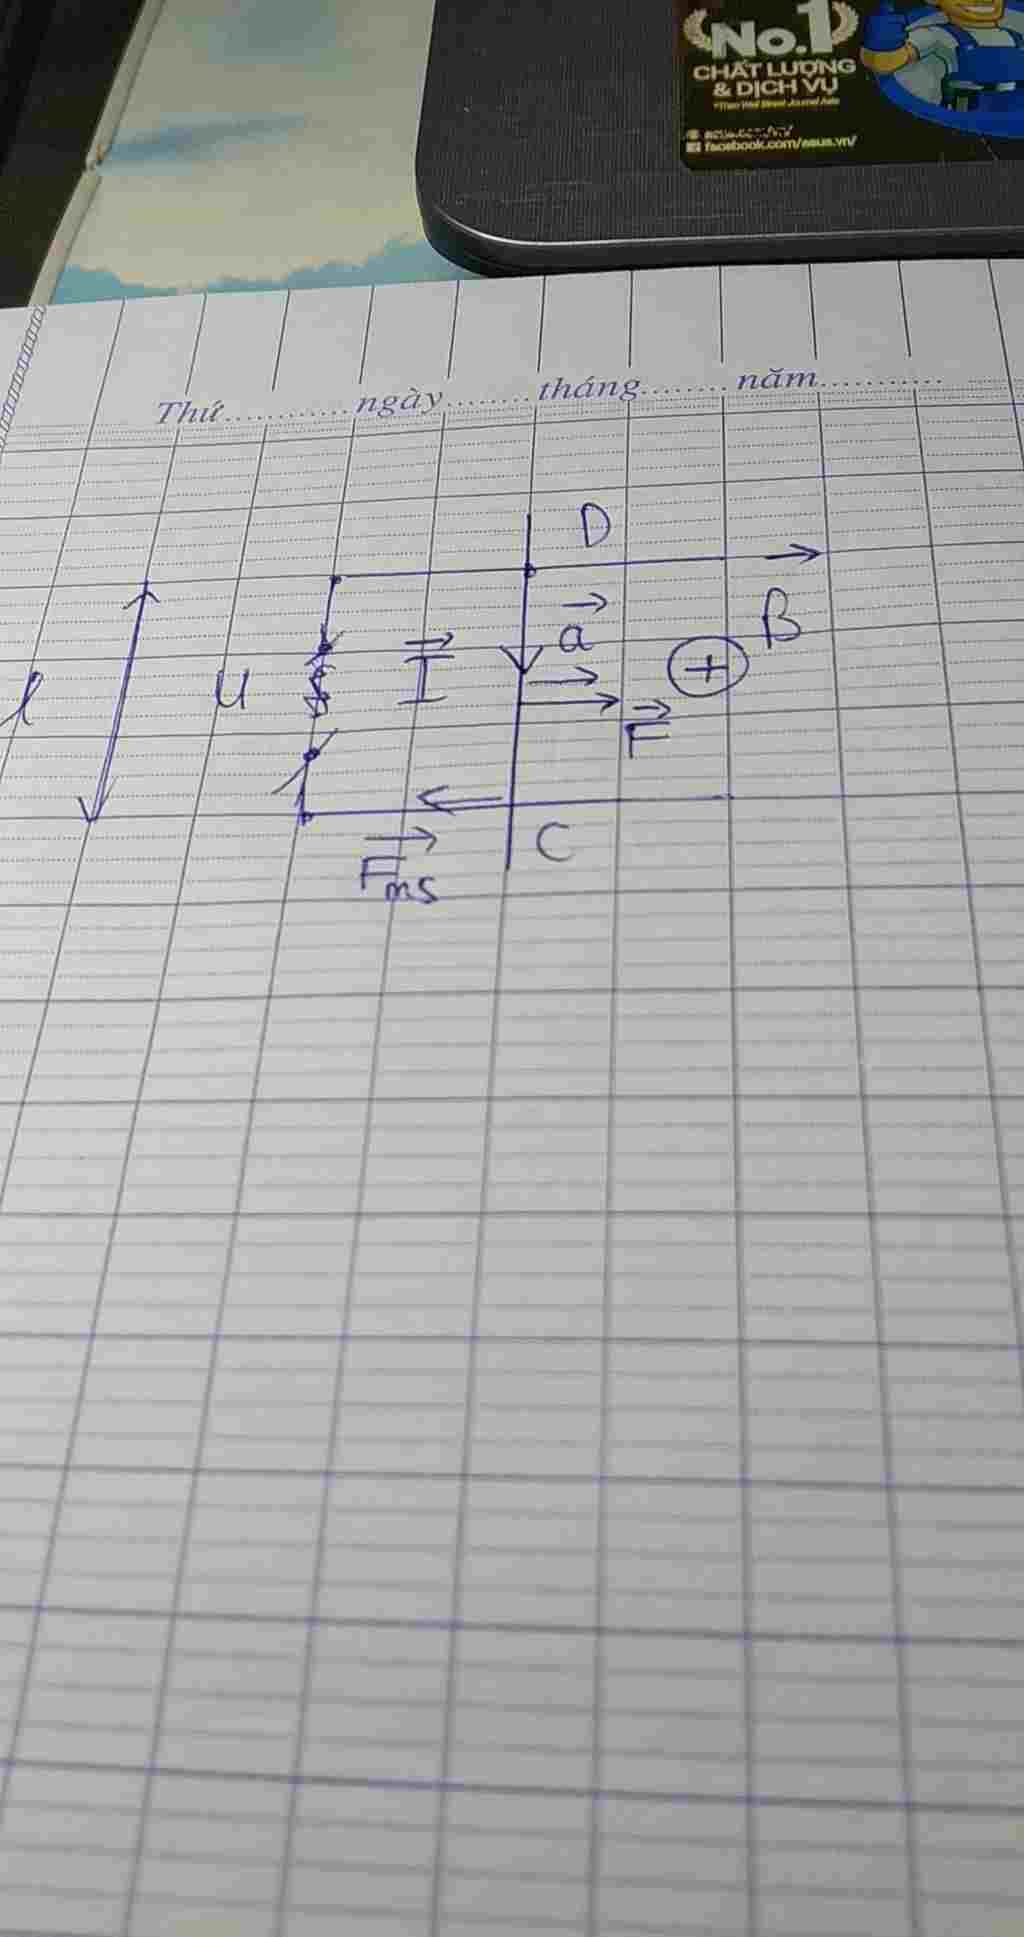 No.1
CHẤT LƯỢNG
& DỊCH VỤ
facebook.com/asus.vn/
Thứ............ngày........tháng........năm...........
D
B
a
l
U
I
+
F
C
Fms